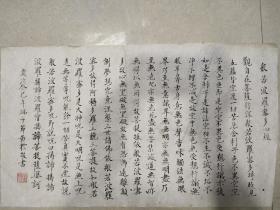 般若波羅蜜多心經
觀自在菩薩行深般若波羅蜜多時照見
五蘊皆空度一切苦厄舍利子色不異空空
不異色色即是空空即是色受想行識亦復
如是舍利子是諸法空相不生不滅不垢不
淨不增不減是故空中無色無受想行識無
眼耳鼻舌身意無色聲香味觸法無眼
界乃至無意識界無無明亦無無明盡乃
至無老死亦無老死盡無苦集滅道無智亦
無得以無所得故菩提薩埵依般若波羅蜜
多故心無罣礙無罣礙故無有恐怖遠離顛
倒夢想究竟涅槃三世諸佛依般若波羅
蜜多故得阿耨多羅三藐三菩提故知般若
波羅蜜多是大神咒是大明咒是無上咒
是無等等咒能除一切苦真實不虛故說
般若波羅蜜多咒即說咒曰揭諦揭諦
波羅揭諦波羅僧揭諦菩提薩婆訶
歲癸巳年秋 敬書